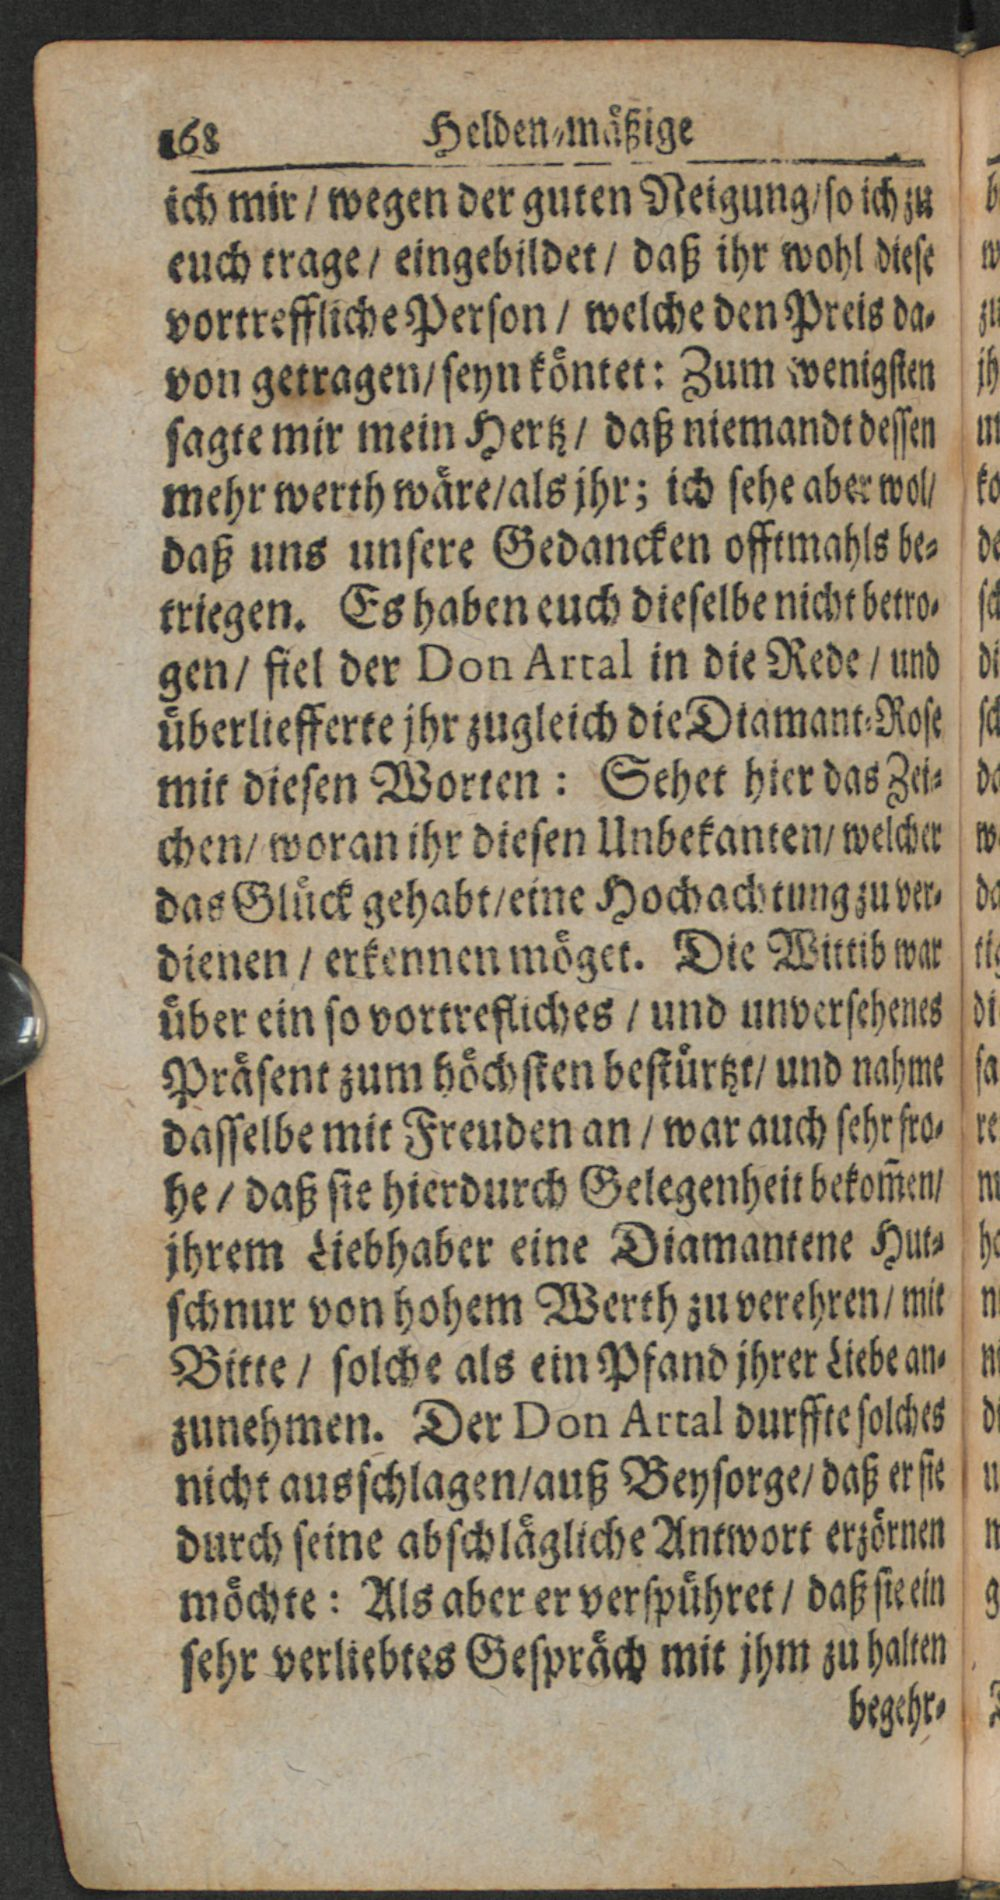 168 Helden-mäßige
ich mir / wegen der guten Neigung / so ich zu
euch trage / eingebildet / daß ihr wohl diese
vortreffliche Person / welche den Preis da-
von getragen / seyn köntet: Zum wenigsten
sagte mir mein Hertz / daß niemandt dessen
mehr werth wäre / als jhr; ich sehe aber wol /
daß uns unsere Gedancken offtmahls be-
triegen. Es haben euch dieselbe nicht betro-
gen / fiel der Don Artal in die Rede / und
überliefferte jhr zugleich die Diamant-Rose
mit diesen Worten: Sehet hier das Zei-
chen / woran ihr diesen Unbekanten / welcher
das Glück gehabt / eine Hochachtung zu ver-
dienen / erkennen möget. Die Wittib war
über ein so vortrefliches / und unversehenes
Präsent zum höchsten bestürtzt / und nahme
dasselbe mit Freuden an / war auch sehr fro-
he / daß sie hierdurch Gelegenheit bekom̃en /
jhrem Liebhaber eine Diamantene Hut-
schnur von hohem Werth zu verehren / mit
Bitte / solche als ein Pfand jhrer Liebe an-
zunehmen. Der Don Artal durffte solches
nicht ausschlagen / auß Beysorge / daß er sie
durch seine abschlägliche Antwort erzörnen
möchte: Als aber er verspühret / daß sie ein
sehr verliebtes Gespräch mit jhm zu halten
begehr-